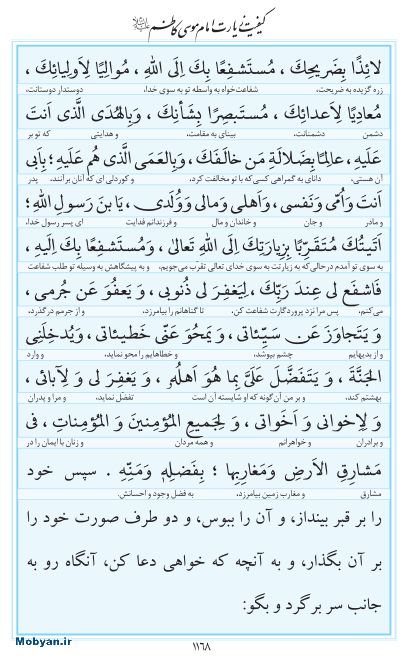 کیفیت زیارت امام موسی کاظم علیه‌السلام
لائِذًا بِضَریحِکَ ، مُستَشفِعًا بِکَ اِلَی اللهِ ، مُوالِیًا لِاَولِیائِکَ ،
زره گزیده به ضریحت، شفاعت‌خواه به واسطه تو به سوی خدا، دوستدار دوستانت،
مُعادِیًا لِاَعدائِکَ ، مُستَبصِرًا بِشَأنِکَ ، وَبِالهُدَی الَّذی اَنتَ
دشمن دشمنانت، بینای به مقامت، و هدایتی که تو بر
عَلَیهِ ، عالِمًا بِضَلالَةِ مَن خالَفَکَ ، وَبِالعَمَی الَّذی هُم عَلَیهِ ؛ بِاَبی
آن هستی، دانای به گمراهی کسی که با تو مخالفت کرد. و کوردلی ای که آنان برآنند. پدر
اَنتَ وَ اُمّی وَنَفسی ، وَاَهلی وَمالی وَ وُلَدی ، یَا بنَ رَسولِ اللهِ ؛
و مادر و جان و خاندان و مال و فرزندانم فدایت ای پسر رسول خدا،
اَتَیتُکَ مُتَقَرِّبًا بِزِیارَتِکَ اِلَی اللهِ تَعالیٰ ، وَمُستَشفِعًا بِکَ اِلَیهِ ،
به سوی تو آمدم درحالی‌که به زیارتت به سوی خدای تعالی تقرب می‌جویم، و به پیشگاهش به وسیله تو طلب شفاعت
فَاشفَع لی عِندَ رَبِّکَ ، لِیَغفِرَ لی ذُنوبی ، وَ یَعفُوَ عَن جُرمی ،
می‌کنم. پس مرا نزد پروردگارت شفاعت کن، تا گناهانم را بیامرزد، و از جرمم درگذرد،
وَ یَتَجاوَزَ عَن سَیِّئاتی ، وَ یَمحُوَ عَنّی خَطیئاتی ، وَیُدخِلَنِی
و از بدیهایم چشم بپوشد، و خطاهایم را محو نماید، و وارد
الجَنَّةَ ، وَ یَتَفَضَّلَ عَلَیَّ بِما هُوَ اَهلُهُ ، وَ یَغفِرَ لی وَ لِآبائی ،
بهشتم کند، و بر من آن‌گونه که او شایسته آن است تفضل نماید، و مرا و پدران
وَ لِاِخوانی وَ اَخَواتی ، وَ لِجَمیعِ المُؤمِنینَ وَ المُؤمِناتِ ، فی
و برادران و خواهرانم و همه مردان و زنان با ایمان را در
مَشارِقِ الاَرضِ وَمَغارِبِها ؛ بِفَضلِهِ وَمَنِّهِ . سپس خود
مشارق و مغارب زمین بیامرزد، به فضل وجود و احسانش.
را بر قبر بینداز، و آن را ببوس، و دو طرف صورت خود را
بر آن بگذار، و به آنچه که خواهی دعا کن، آنگاه رو به
جانب سر برگرد و بگو:
۱۱۶۸
Mobyan.ir